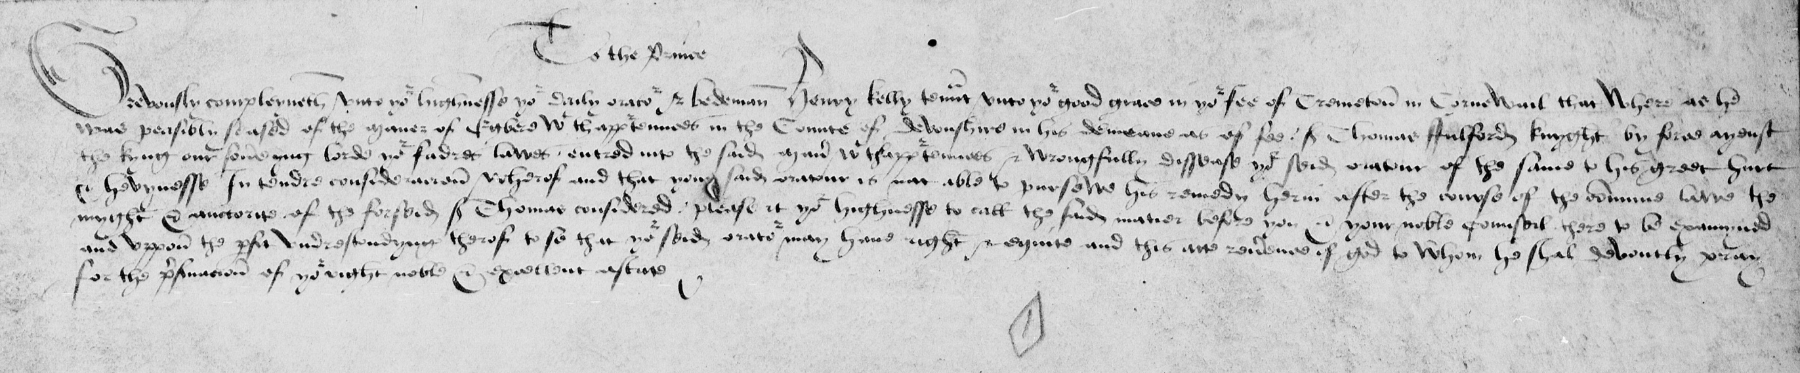 To the Prince
Grevously compleyneth unto yor highnesse yor daily orator & bedeman Henry Kelly tennt unto yor good grace in yor fee of Tremeton in Cornewail that Where as he
was peasibly seased of the maner of wt thapprtennces in the Counte of devonshire in his demeane as of fee / Sr Thomas ffulford knyght by force ayenst
the kyng our soveraign lorde yor fadres lawes entred into the said maner wt thapprtennces & wrongfully dissease yor seid oratour of the same to his greet hurt
& hevynesse In tendre consideracion wherof and that your said oratour is nat able to pursewe his remedy herin after the course of the comune lawe the
myight & auctorite of the forseid Sr Thomas considered / please it yor highnesse to call the said matier before you & your noble Counseil there to be examyned
and uppon the pfit undrestondyng therof to se that yor seid orator may have right & equite and this atte revrence of god to Whom he shal devoutly pray
for the prservacion of yor right noble & excellent astate